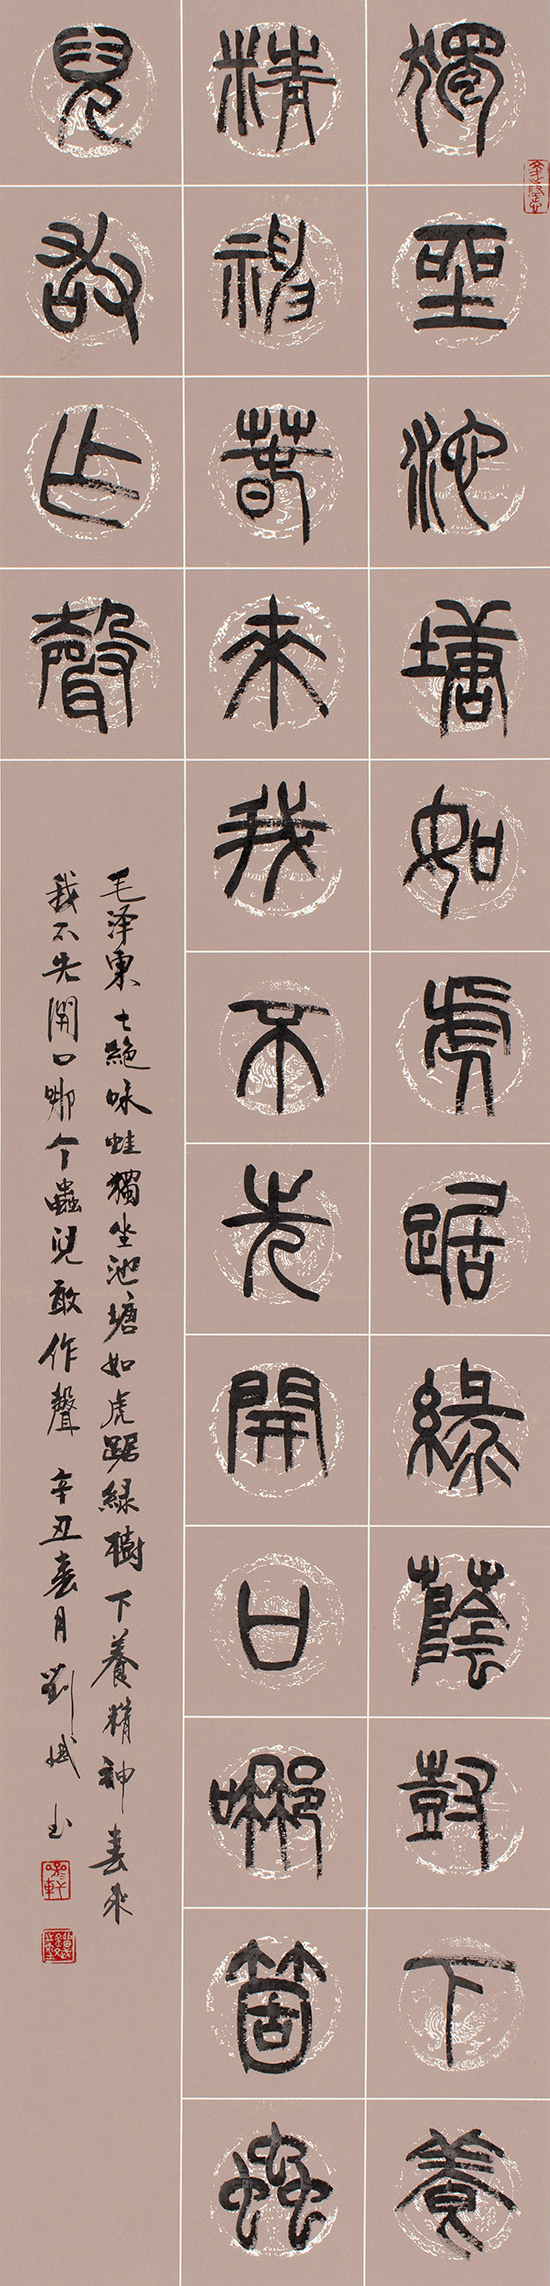 獨坐池塘如虎踞綠蔭尌下養
精神春來我不先開口哪箇蟲
兒敢乍聲
毛泽東七絶咏蛙獨坐池塘如虎踞綠樹下養精神春来
我不先開口哪个蟲兒敢作聲 辛丑春月 劉斌书